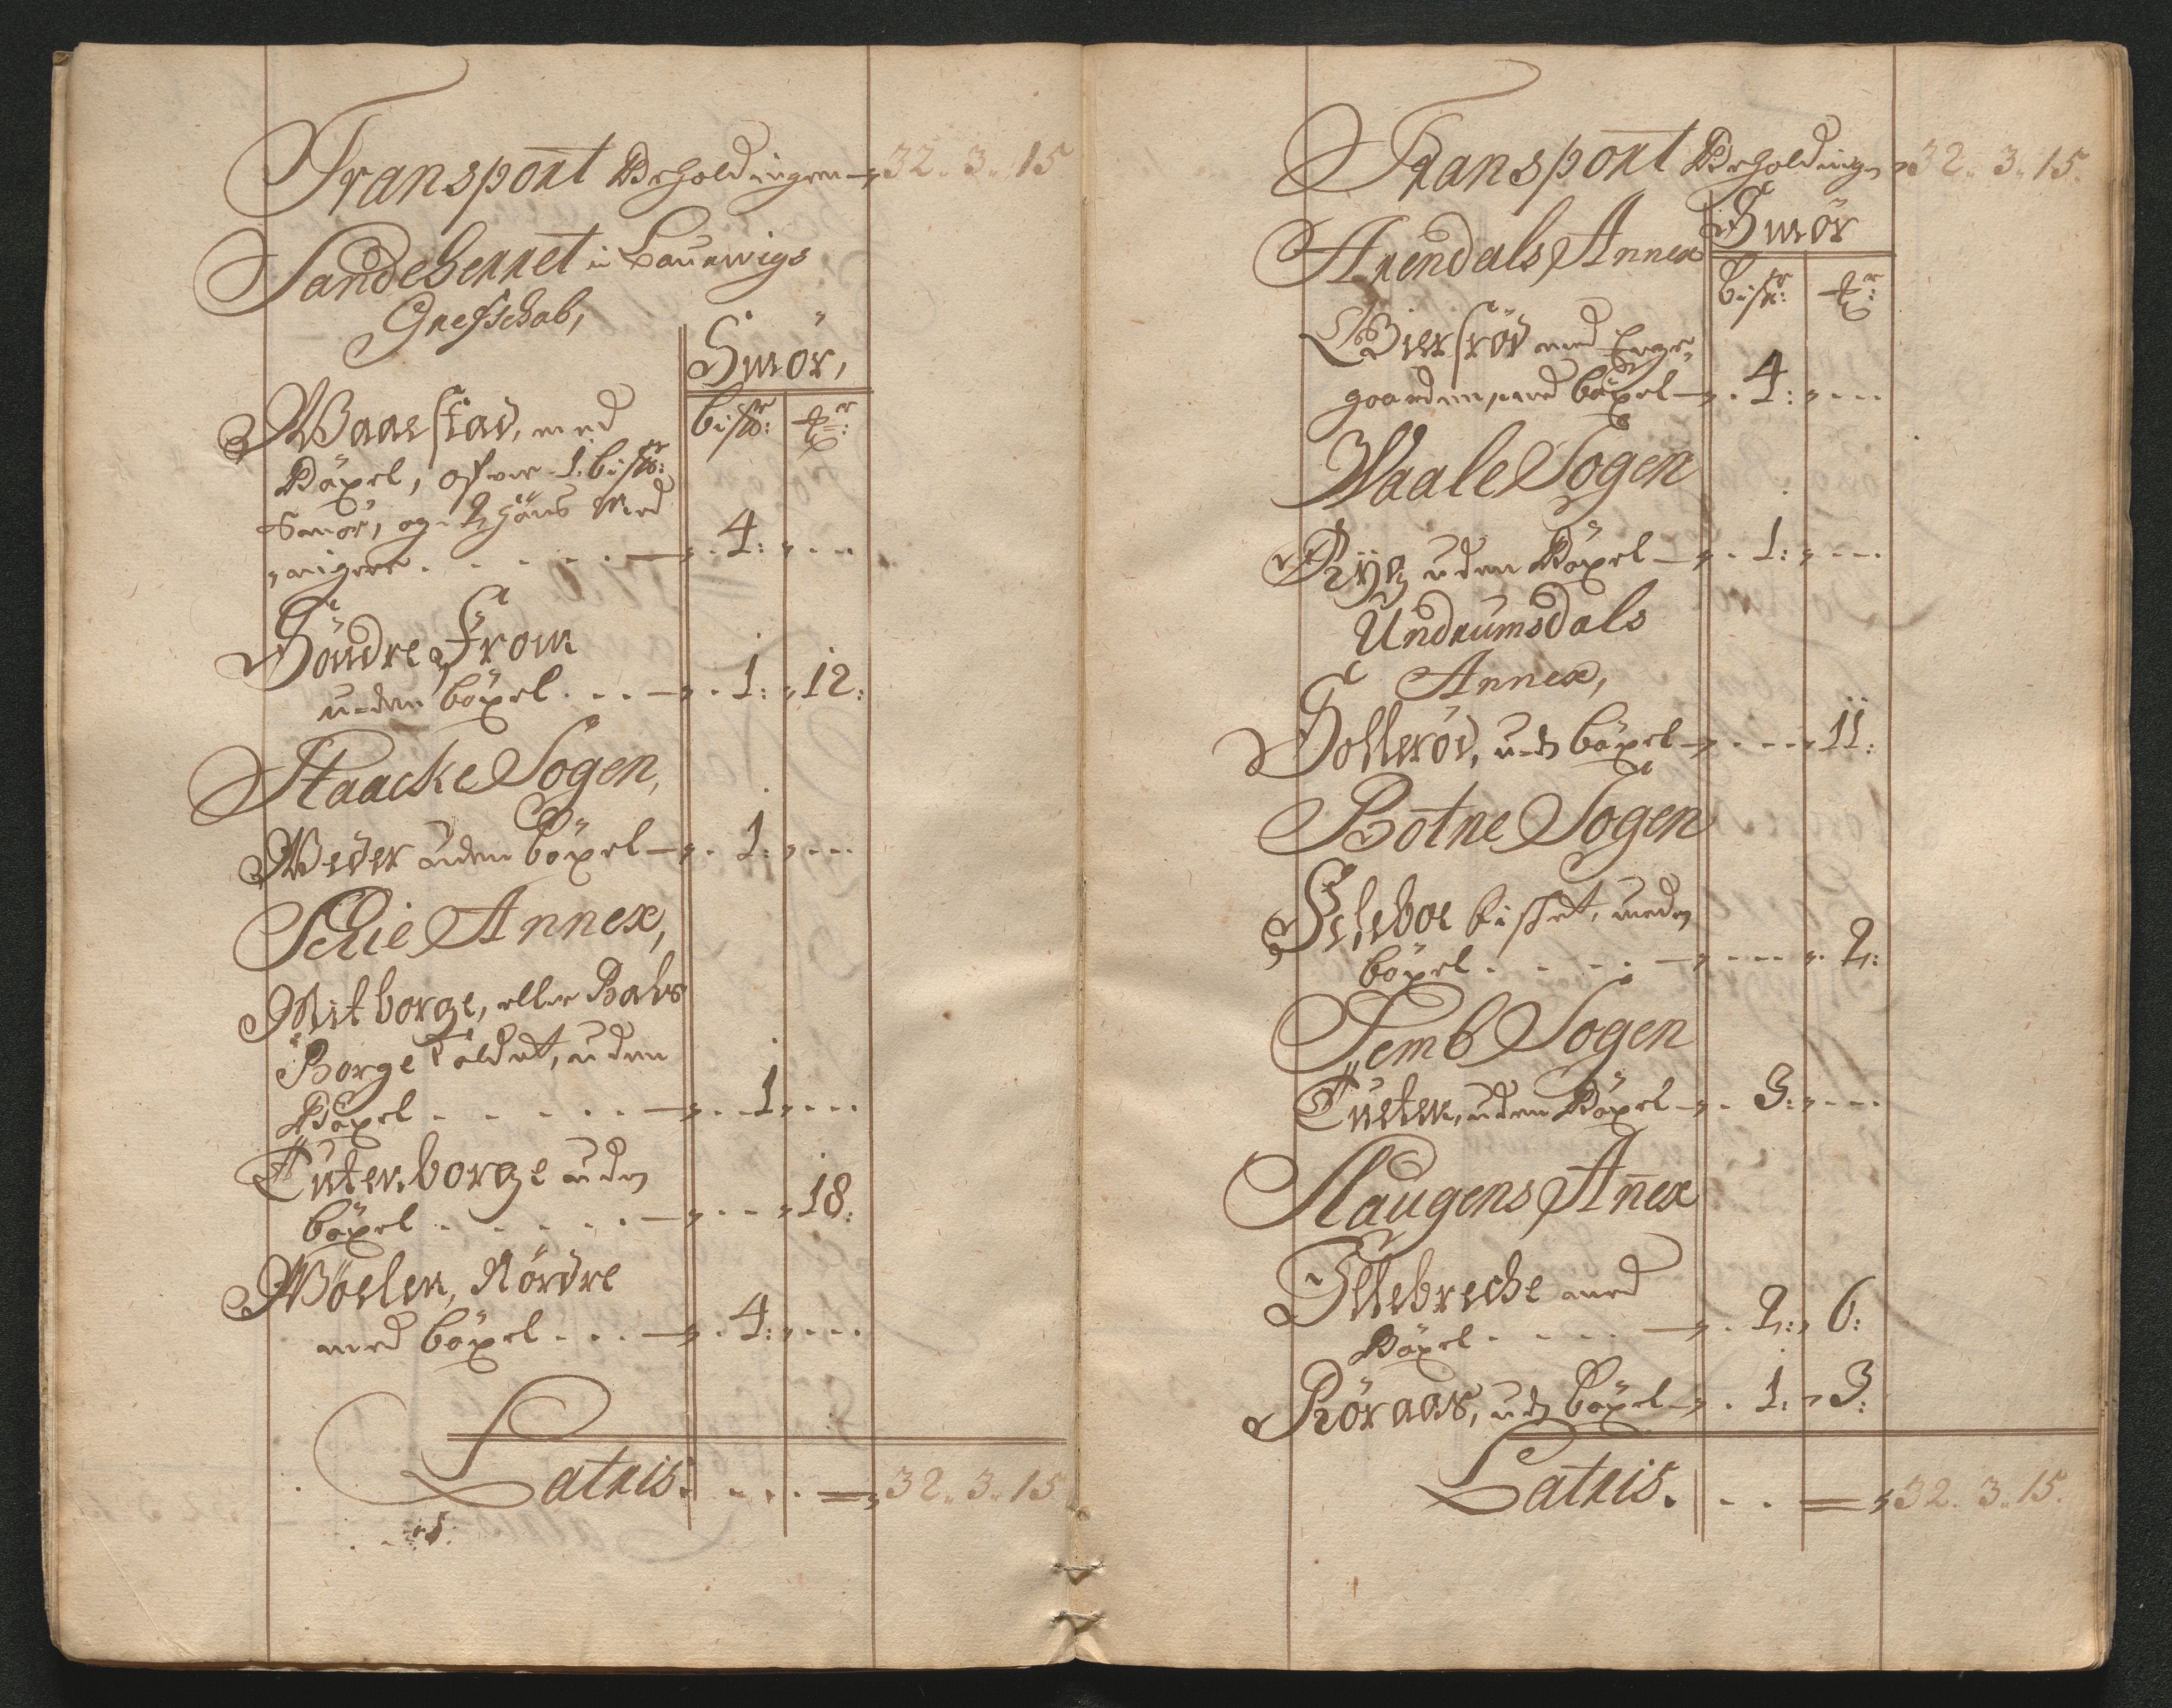 Transport Beholdingen - 32. 3. 15
Sandeherret i Laurwigs
Grefschab,
Smør,
bispd: ℔r:
Waaestad, med
Böxel, ofver 1. bispd:
Smør, og 2 Huus Med
nigere . . . . . 4: " . . .
Söndre From
uden böxel . . . 1: " 12:
Raacke Sogen,
Weder uden böxel — 1: " . . .
Schie Annex,
Mitborge, eller Bahs
Borge kaldet, uden
Böxel . . . . . 1 " . . .
Tutenborge uden
böxel . . . . . " 18:
Wöelen, Nördre
med böxel . . . 4: " . . .
Lateris. . . . = 32. 3. 15
Transport Beholdingen 32. 3. 15.
Arendals Annex
Smør
bispd: ℔r:
Bierfröd med Enge
gaarden, med böxel — 4: " . . .
Waale Sogen
Ryg uden Böxel — 1: " . . .
Undrumsdals
Annex,
Solleröd, uden böxel — . . . 11:
Botne Sogen
Seleboe kaldet, uden
böxel . . . . . — . . . 2:
Semb Sogen
Tuften, uden Böxel — 3: " . . .
Haugens Añex
Ellebreche med
Böxel . . . . — 2: " 6:
Röraas, uden böxel — 1: " 3:
Lateris. . . = 32. 3. 15.